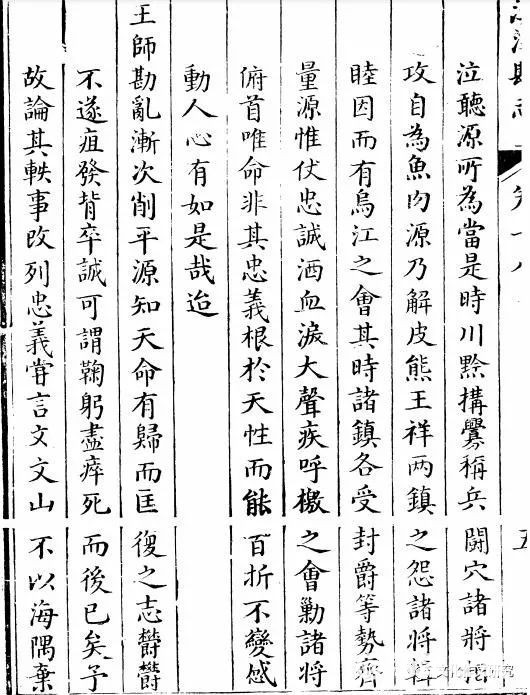 泣聽源所為當是時川黔搆釁稱兵鬭穴諸將
攻自為魚肉源乃解皮熊王祥两鎮之怨諸將輯
睦因而有烏江之會其時諸鎮各受封爵等勢齊
量源惟仗忠誠洒血淚大聲疾呼檄之會勦諸將
俯首唯命非其忠義根於天性而能百折不變感
動人心有如是哉迨
王師勘亂漸次削平源知天命有歸而匡復之志欝欝
不遂疽發背卒誠可謂鞠躬盡瘁死而後已矣予
故論其軼事改列忠義甞言文文山不以海隅棄